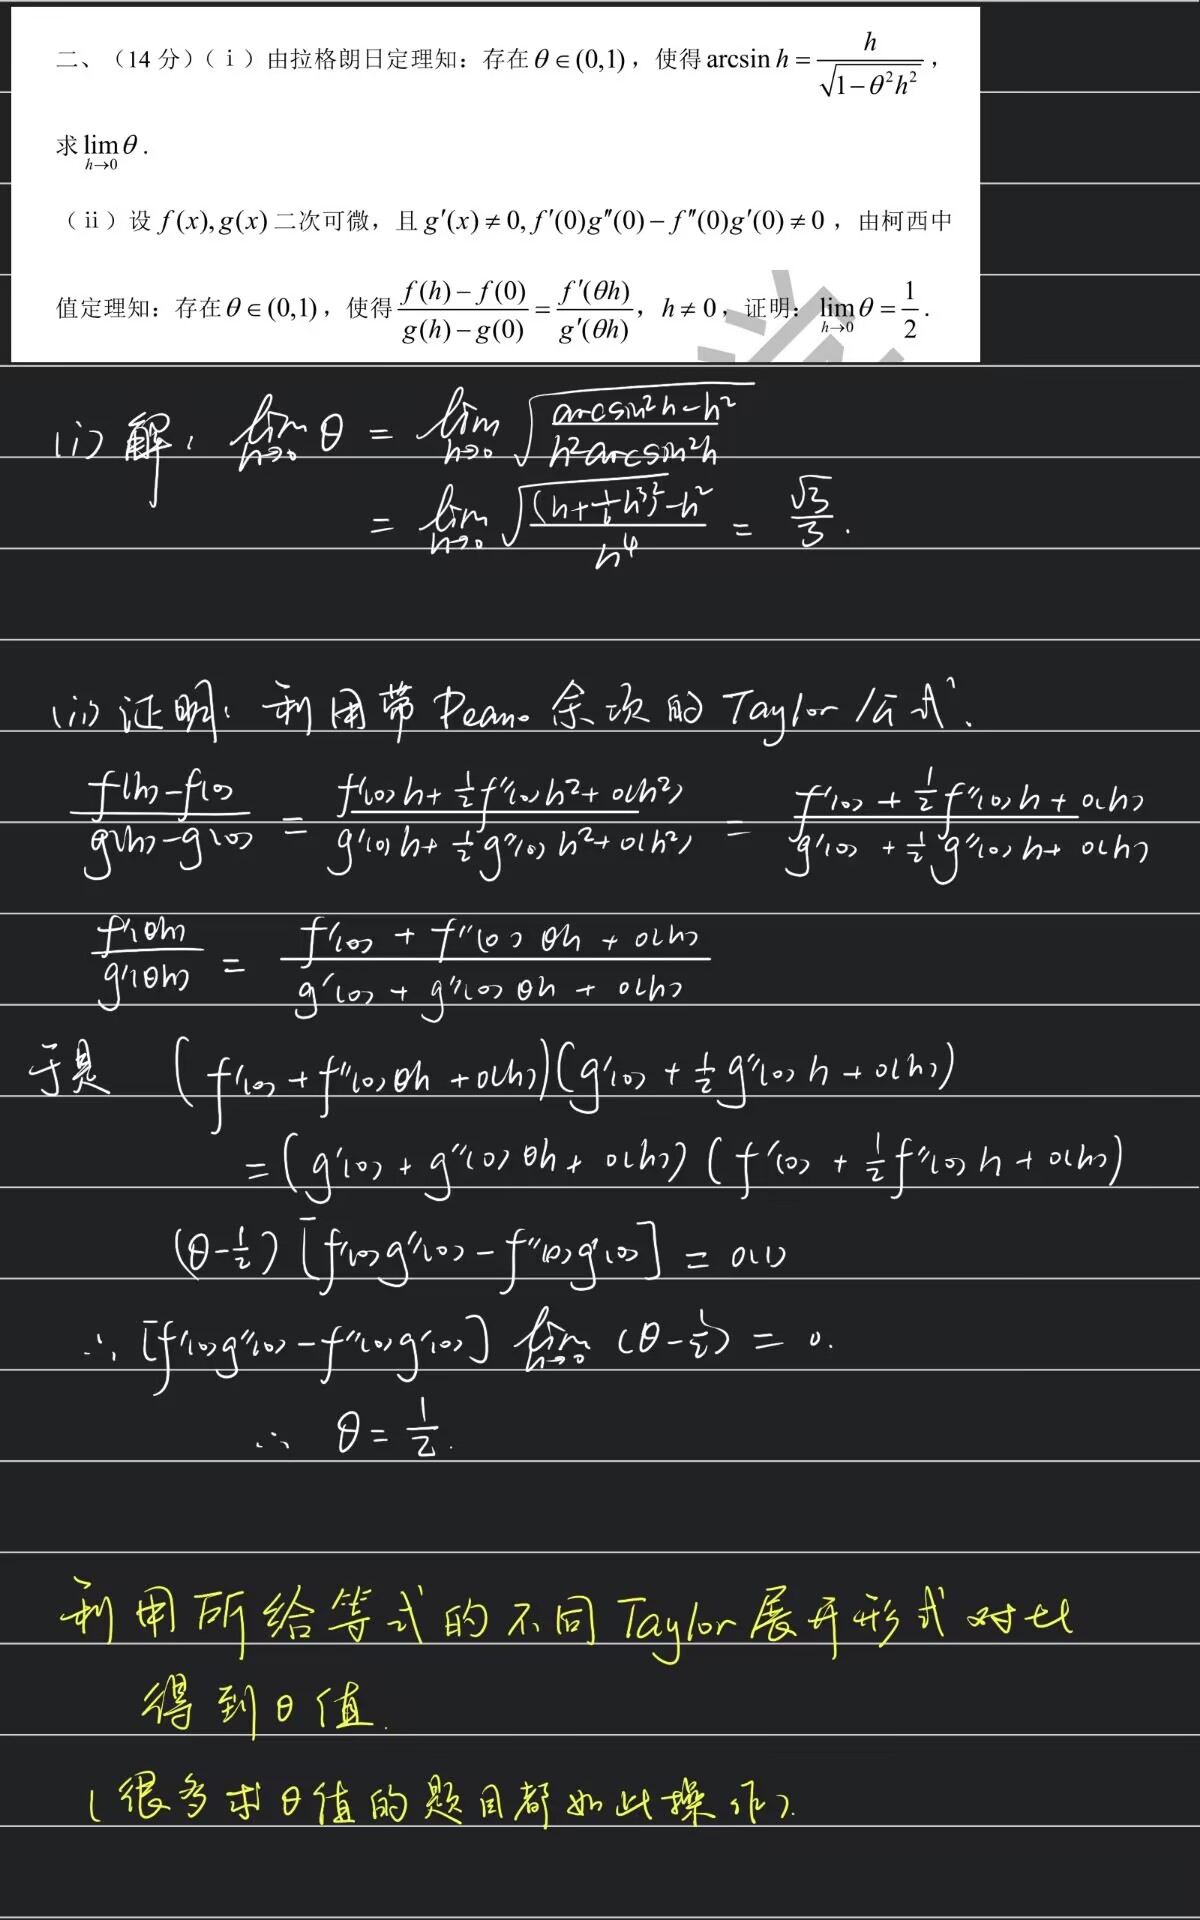 二、（14 分）（ⅰ）由拉格朗日定理知：存在 θ∈(0,1)，使得 arcsin h = h / √(1−θ²h²)，
求 lim_{h→0} θ．
（ⅱ）设 f(x), g(x) 二次可微，且 g′(x)≠0, f′(0)g″(0)−f″(0)g′(0)≠0，由柯西中
值定理知：存在 θ∈(0,1)，使得 (f(h)−f(0))/(g(h)−g(0)) = f′(θh)/g′(θh)，h≠0，证明：lim_{h→0} θ = 1/2．
(i) 解: lim_{h→0} θ = lim_{h→0} √((arcsin²h−h²)/(h²arcsin²h))
= lim_{h→0} √(((h+1/6 h³)²−h²)/h⁴) = √3/3.
(ii) 证明: 利用带 Peano 余项的 Taylor 公式.
(f(h)−f(0))/(g(h)−g(0)) = (f′(0)h+1/2 f″(0)h²+o(h²))/(g′(0)h+1/2 g″(0)h²+o(h²)) = (f′(0)+1/2 f″(0)h+o(h))/(g′(0)+1/2 g″(0)h+o(h))
f′(θh)/g′(θh) = (f′(0)+f″(0)θh+o(h))/(g′(0)+g″(0)θh+o(h))
于是 (f′(0)+f″(0)θh+o(h))(g′(0)+1/2 g″(0)h+o(h))
=(g′(0)+g″(0)θh+o(h))(f′(0)+1/2 f″(0)h+o(h))
(θ−1/2)[f′(0)g″(0)−f″(0)g′(0)] = o(1)
∴ [f′(0)g″(0)−f″(0)g′(0)] lim_{h→0} (θ−1/2) = 0.
∴ θ = 1/2.
利用所给等式的不同Taylor展开形式对比
得到θ值.
(很多求θ值的题目都如此操作).